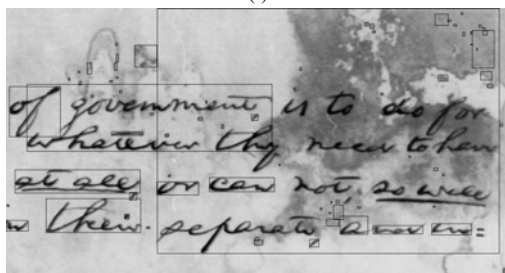 of government is to do for
whatever they need to have
at all or can not so well
their separate and in=